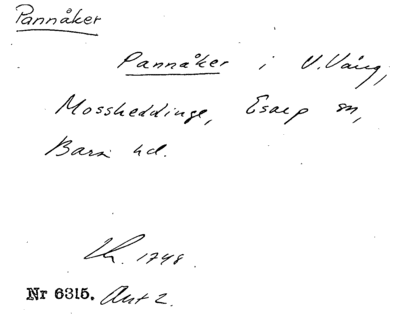 Pannåker
Pannåker i V. Vång,
Mossheddinge, Esarp sn,
Bara hd.
1748.
Nr 6315. Akt 2.